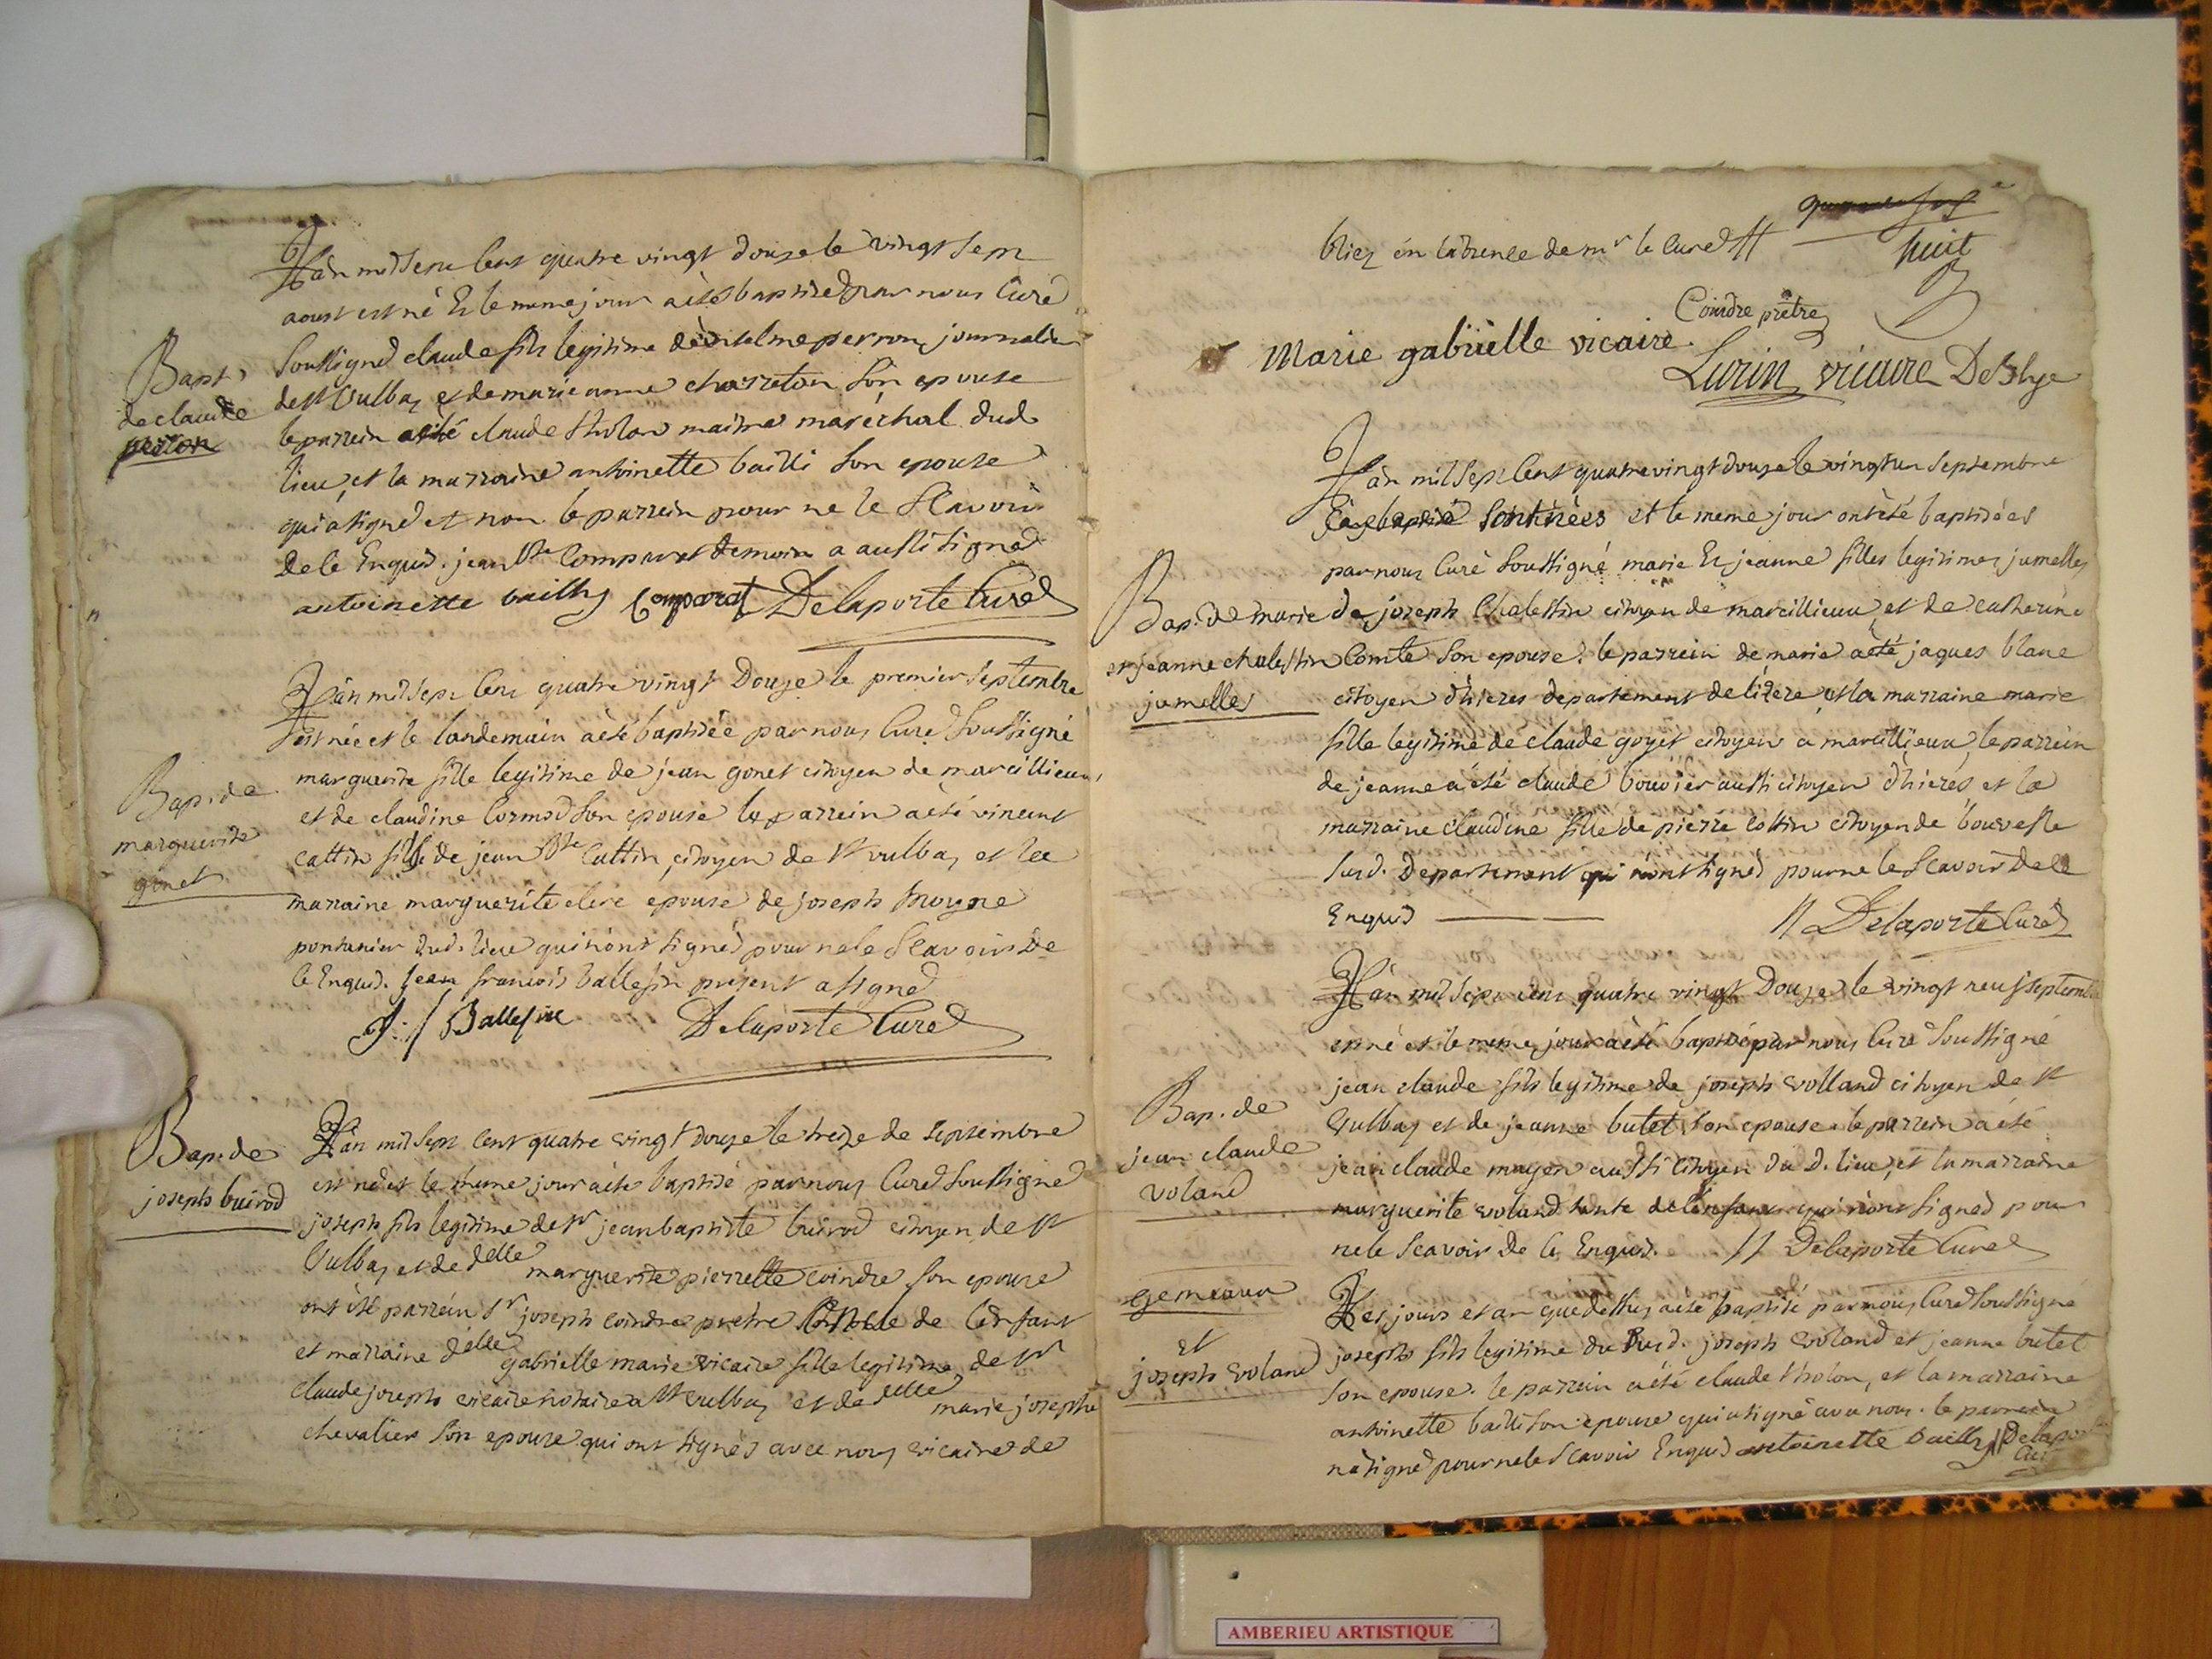 L'an mil sept cent quatre vingt douze le vingt sept
aoust est né Et le meme jour a été baptisé par nous Curé
Soussigné claude fils legitime d'anselme perron journalier
de st Vulbas et de marie anne charreton son epouse
le parrein a été claude tholon maitre maréchal dud
lieu, et la marraine antoinette bailli son epouse
qui a signé et non le parrein pour ne le Scavoir
de le Enquis. jean bte Comparat temoin a aussi signé
antoinette bailly Comparat Delaporte Curé
Bapt.
de claude
perron
L'an mil sept cent quatre vingt Douze le premier Septembre
est née et le landemain a été baptisée par nous Curé Soussigné
marguerite fille legitime de jean gonet citoyen de marcillieux,
et de claudine Cormod son epouse le parrein a été vincent
Cattin fils de jean bte Cattin citoyen de st vulbas et la
marraine marguerite clere epouse de joseph moyne
pontenier dud. lieu qui n'ont signés pour ne le Scavoir De
le Enquis. jean francois ballefin présent a signé
J: f Ballefin Delaporte Curé
Bap. de
marguerite
gonet
L'an mil sept cent quatre vingt douze le treize de Septembre
est né et le meme jour a été baptisé par nous Curé Soussigné
joseph fils legitime de sr jean baptiste buirod citoyen de st
Vulbas et de delle marguerite pierrette coindre son epouse
ont été parrein sr joseph coindre pretre de l'enfant
et marraine delle gabrielle marie vicaire fille legitime de sr
claude joseph vicaire notaire a st vulbas et de delle marie josephe
chevalier son epouse qui ont signés avec nous vicaire de
Bap. de
joseph buirod
quarante sept
huit
bliez en l'absence de mr le Curé //
Coindre prêtre
Marie gabrièlle vicaire.
Lurin vicaire De Blye
L'an mil sept cent quatre vingt douze le vingt un septembre
sont nées et le meme jour ont été baptisées
par nous Curé Soussigné marie Et jeanne filles legitimes jumelles
de joseph Chalestin citoyen de marcillieux et de catherine
Comte son epouse. le parrein de marie a été jaques blanc
citoyen d'hieres departement de lizere, et la marraine marie
fille legitime de claude goyet citoyen a marcillieux, le parrein
de jeanne a été claude bouvier aussi citoyen d'hieres et la
marraine claudine fille de pierre cottin citoyen de bouvesse
susd. Departement qui n'ont signés pour ne le Scavoir de le
Enquis // Delaporte Curé
Bap. de marie
et jeanne chalestin
jumelles
L'an mil sept cent quatre vingt Douze le vingt neuf septembre
est né et le meme jour a été baptisé par nous Curé Soussigné
jean claude fils legitime de joseph volland citoyen de st
Vulbas et de jeanne butet son epouse. le parrein a été
jean claude moyen aussi citoyen du d. lieu, et la marraine
marguerite voland tante de l'enfant qui n'ont signés pour
ne le Scavoir de le Enquis. // Delaporte Curé
Bap. de
jean claude
voland
gemeaux
et
joseph voland
Les jours et an que dessus a été baptisé par nous Curé Soussigné
joseph fils legitime du susd. joseph voland et jeanne butet
son epouse. le parrein a été claude tholon, et la marraine
antoinette bailli son epouse qui a signé avec nous. le parrein
n'a signé pour ne le Scavoir Enquis antoinette bailly // Delaporte
Curé
AMBERIEU ARTISTIQUE